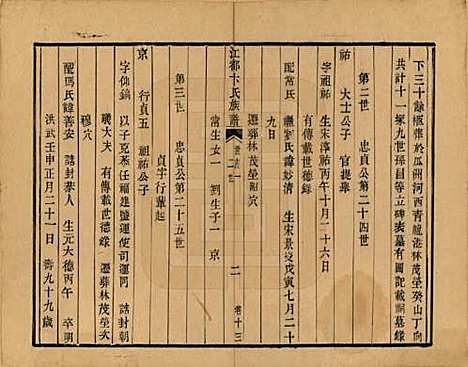 下三十餘柩葬於瓜洲河西青龍港林茂塋癸山丁向
共計十一冢九世孫昌等立碑表墓有圖記載祠墓錄
第二世 忠貞公第二十四世
祐 大士公子 官提舉
字祖祐 生宋淳祐丙午十月二十六日
有傳載世德錄
配常氏 繼劉氏諱妙清 生宋景炎戊寅七月二十
九日
遷葬林茂塋昭穴
常生女一 劉生子一 京
江都卞氏族譜
二
卷十三
第三世 忠貞公第二十五世
京 行貞五 祖祐公子
貞字行輩起
字仰鎬 以子克燕任福建鹽運使司運同 誥封朝
議大夫 有傳載世德錄 遷葬林茂塋次
穆穴
配馮氏諱善安 誥封恭人 生元大德丙午 卒明
洪武壬申正月二十一日 壽九十九歲